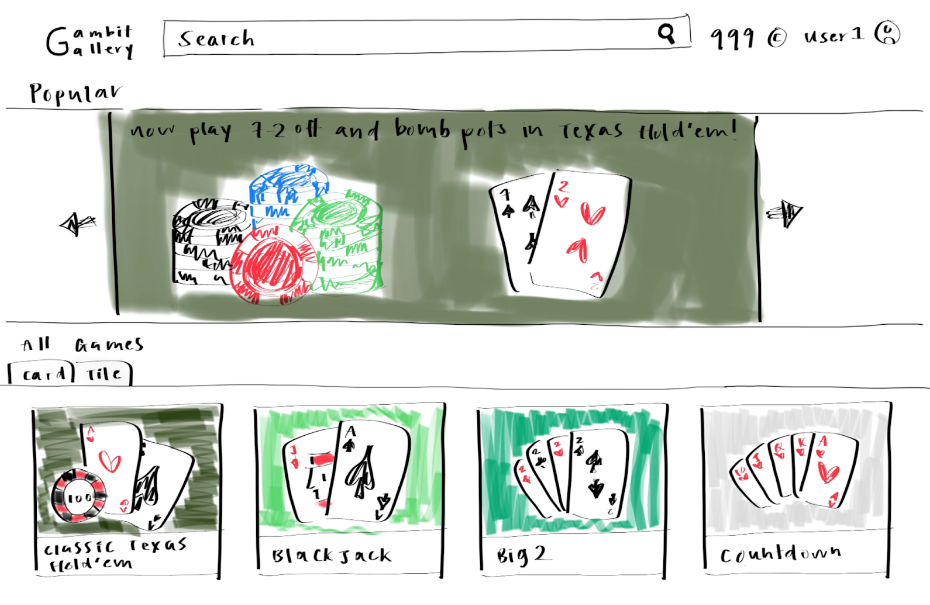 Gambit
Gallery
Search
999 © user1
Popular
now play 7-2 off and bomb pots in Texas Hold'em!
7
2
2
All Games
Card Tile
A
100
Classic Texas
Hold'em
J
A
Blackjack
2
2
2
2
2
Big 2
10
J
Q
K
A
A
Countdown